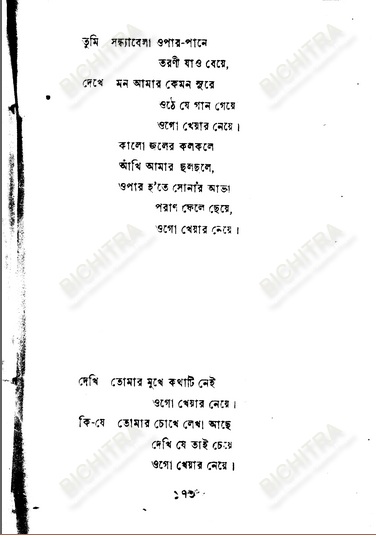 তুমি সন্ধ্যাবেলা ওপার-পানে
তরণী যাও বেয়ে,
দেখে মন আমার কেমন সুরে
ওঠে যে গান গেয়ে
ওগো খেয়ার নেয়ে।
কালো জলের কলকলে
আঁখি আমার ছলছলে,
ওপার হ'তে সোনার আভা
পরাণ ফেলে ছেয়ে,
ওগো খেয়ার নেয়ে।
দেখি তোমার মুখে কথাটি নেই
ওগো খেয়ার নেয়ে।
কি-যে তোমার চোখে লেখা আছে
দেখি যে তাই চেয়ে
ওগো খেয়ার নেয়ে।
BICHITRA
BICHITRA
BICHITRA
BICHITRA
BICHITRA
BICHITRA